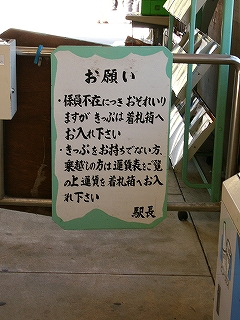 お願い
・係員不在につき おそれいり
ますが きっぷは着札箱へ
お入れ下さい
・きっぷをお持ちでない方、
乗越しの方は運賃表をご覧
の上運賃を着札箱へお入
れ下さい
駅長